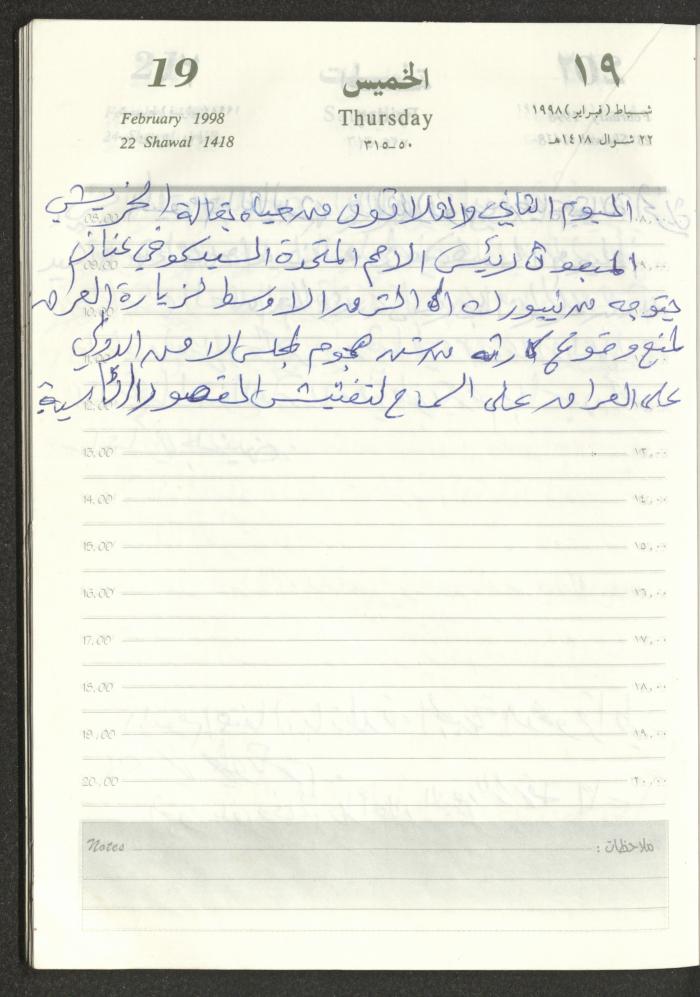 19 الخميس ١٩
February 1998 Thursday شباط (فبراير) ١٩٩٨
22 Shawal 1418 ٥٠-٣١٥ ٢٢ شوال ١٤١٨هـ
اليوم الثاني والثلاثون من حياة بقالة الخريشي
المبعوث رئيس الامم المتحدة السيد كوفي عنان
يتوجه من نيويورك الى الشرق الاوسط لزيارة العراق
لمنع وقوع كارثه من شن هجوم لمجلس الامن الدولي
على العراق على السماح لتفتيش القصور الرئاسية
08.00 ٠٨,٠٠
09.00 ٠٩,٠٠
10.00
12.00
13.00 ١٣,٠٠
14.00 ١٤,٠٠
15.00 ١٥,٠٠
16.00 ١٦,٠٠
17.00 ١٧,٠٠
18.00 ١٨,٠٠
19.00 ١٩,٠٠
20.00 ٢٠,٠٠
Notes ملاحظات :